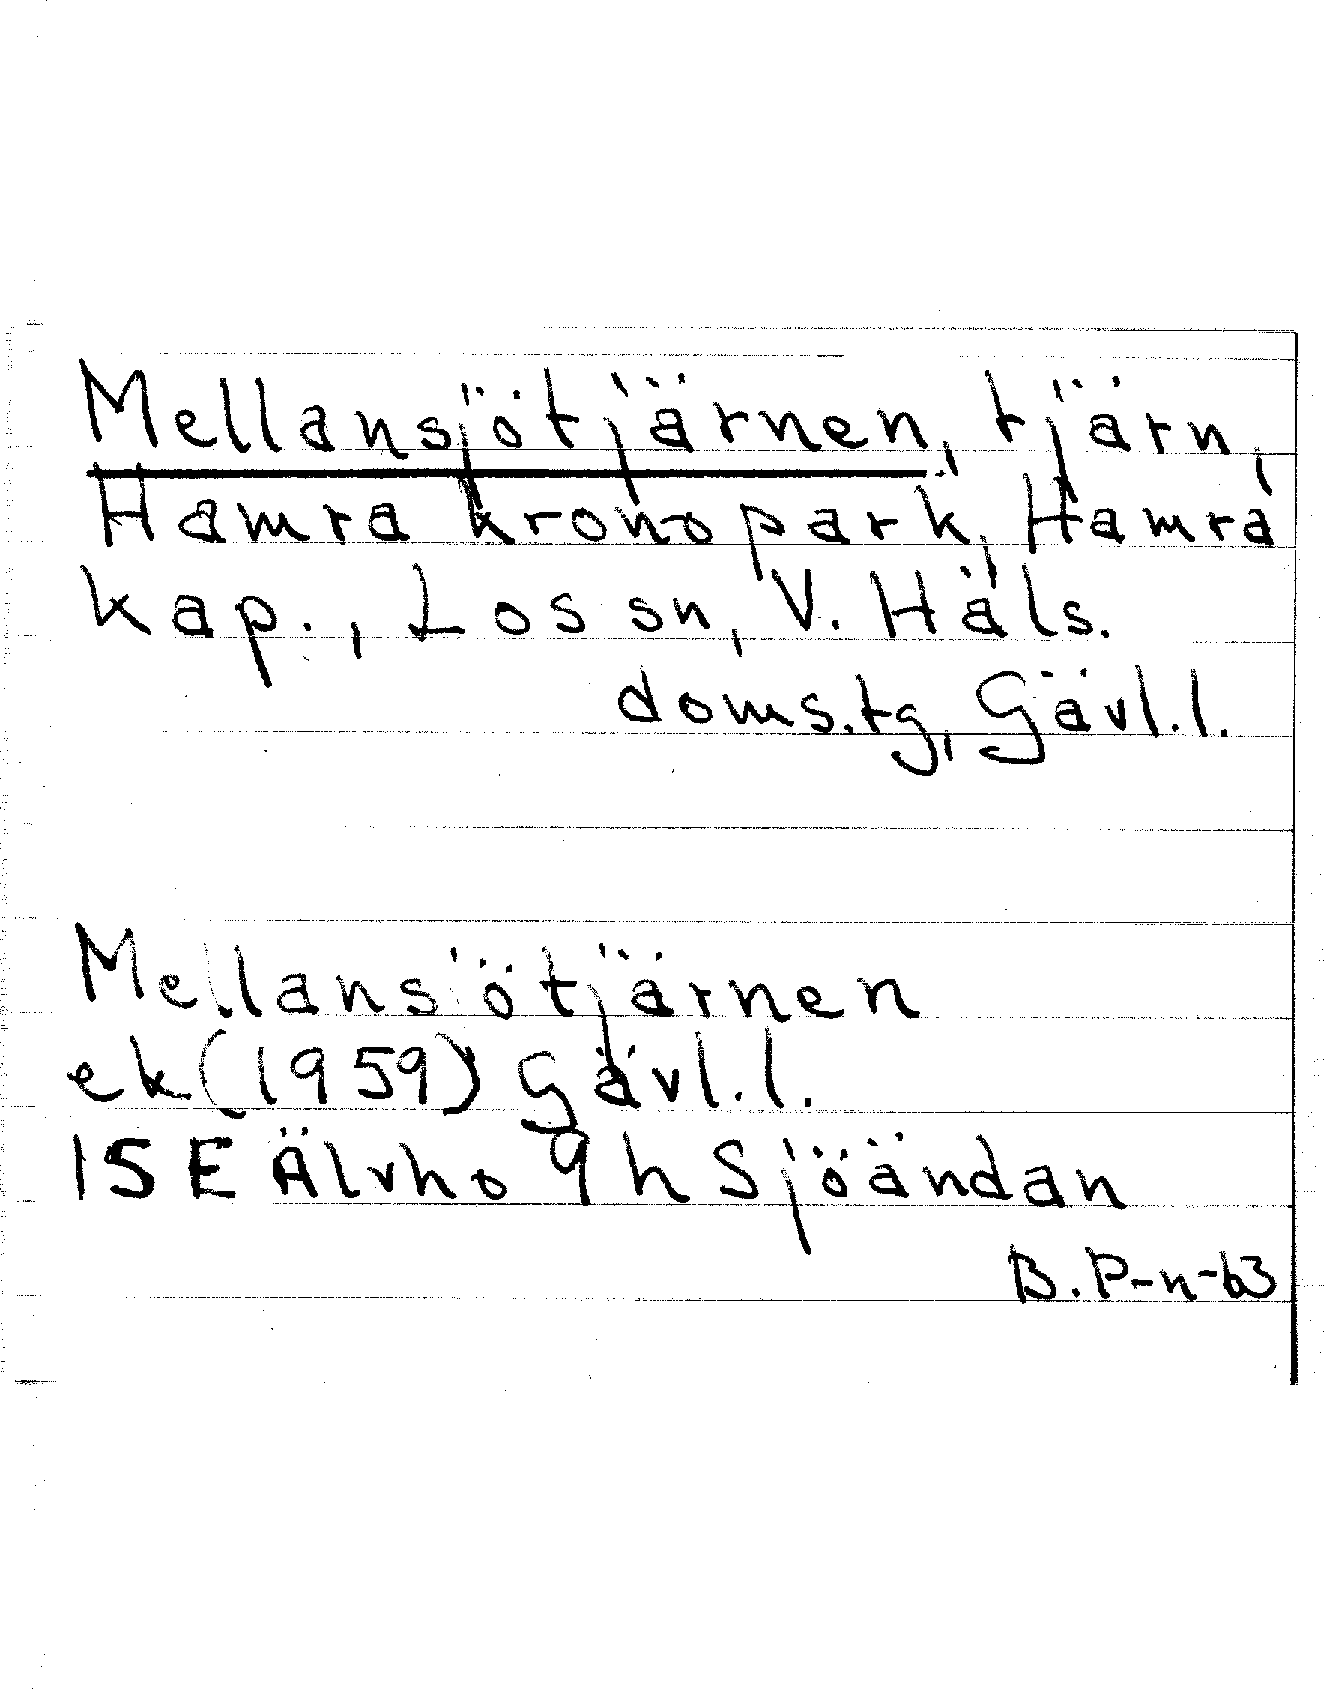 Mellansjötjärnen, tjärn,
Hamra kronopark, Hamra
kap., Los sn, V. Häls.
doms.tg, Gävl.l.
Mellansjötjärnen
ek (1959) Gävl.l.
15 E Älvho 9 h Sjöändan
B. P-n-63